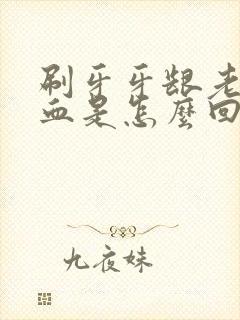 刷牙牙龈老
血是怎麽回
九夜妹